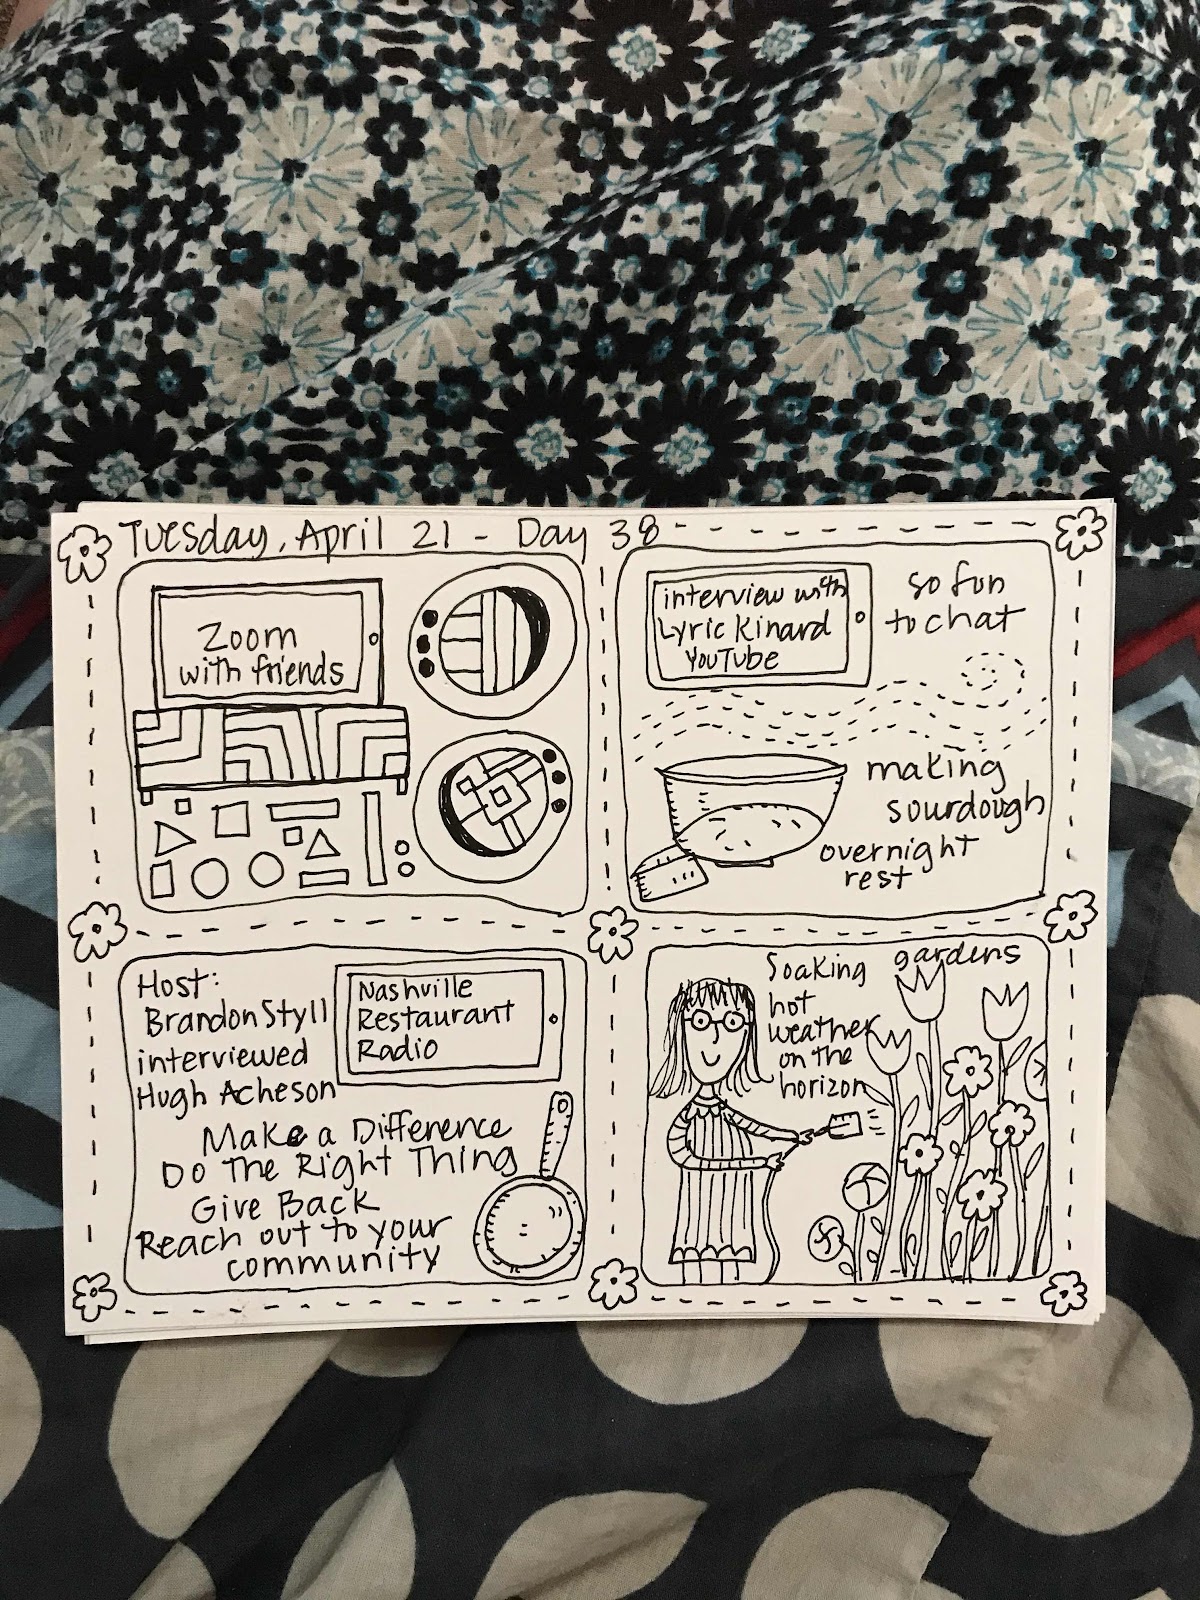 Tuesday, April 21 - Day 38
Zoom
with friends
interview with
Lyric Kinard
YouTube
so fun
to chat
making
sourdough
overnight
rest
Host:
Brandon Styll
interviewed
Hugh Acheson
Nashville
Restaurant
Radio
Make a Difference
Do The Right Thing
Give Back
Reach out to your
community
Soaking gardens
hot
weather
on the
horizon